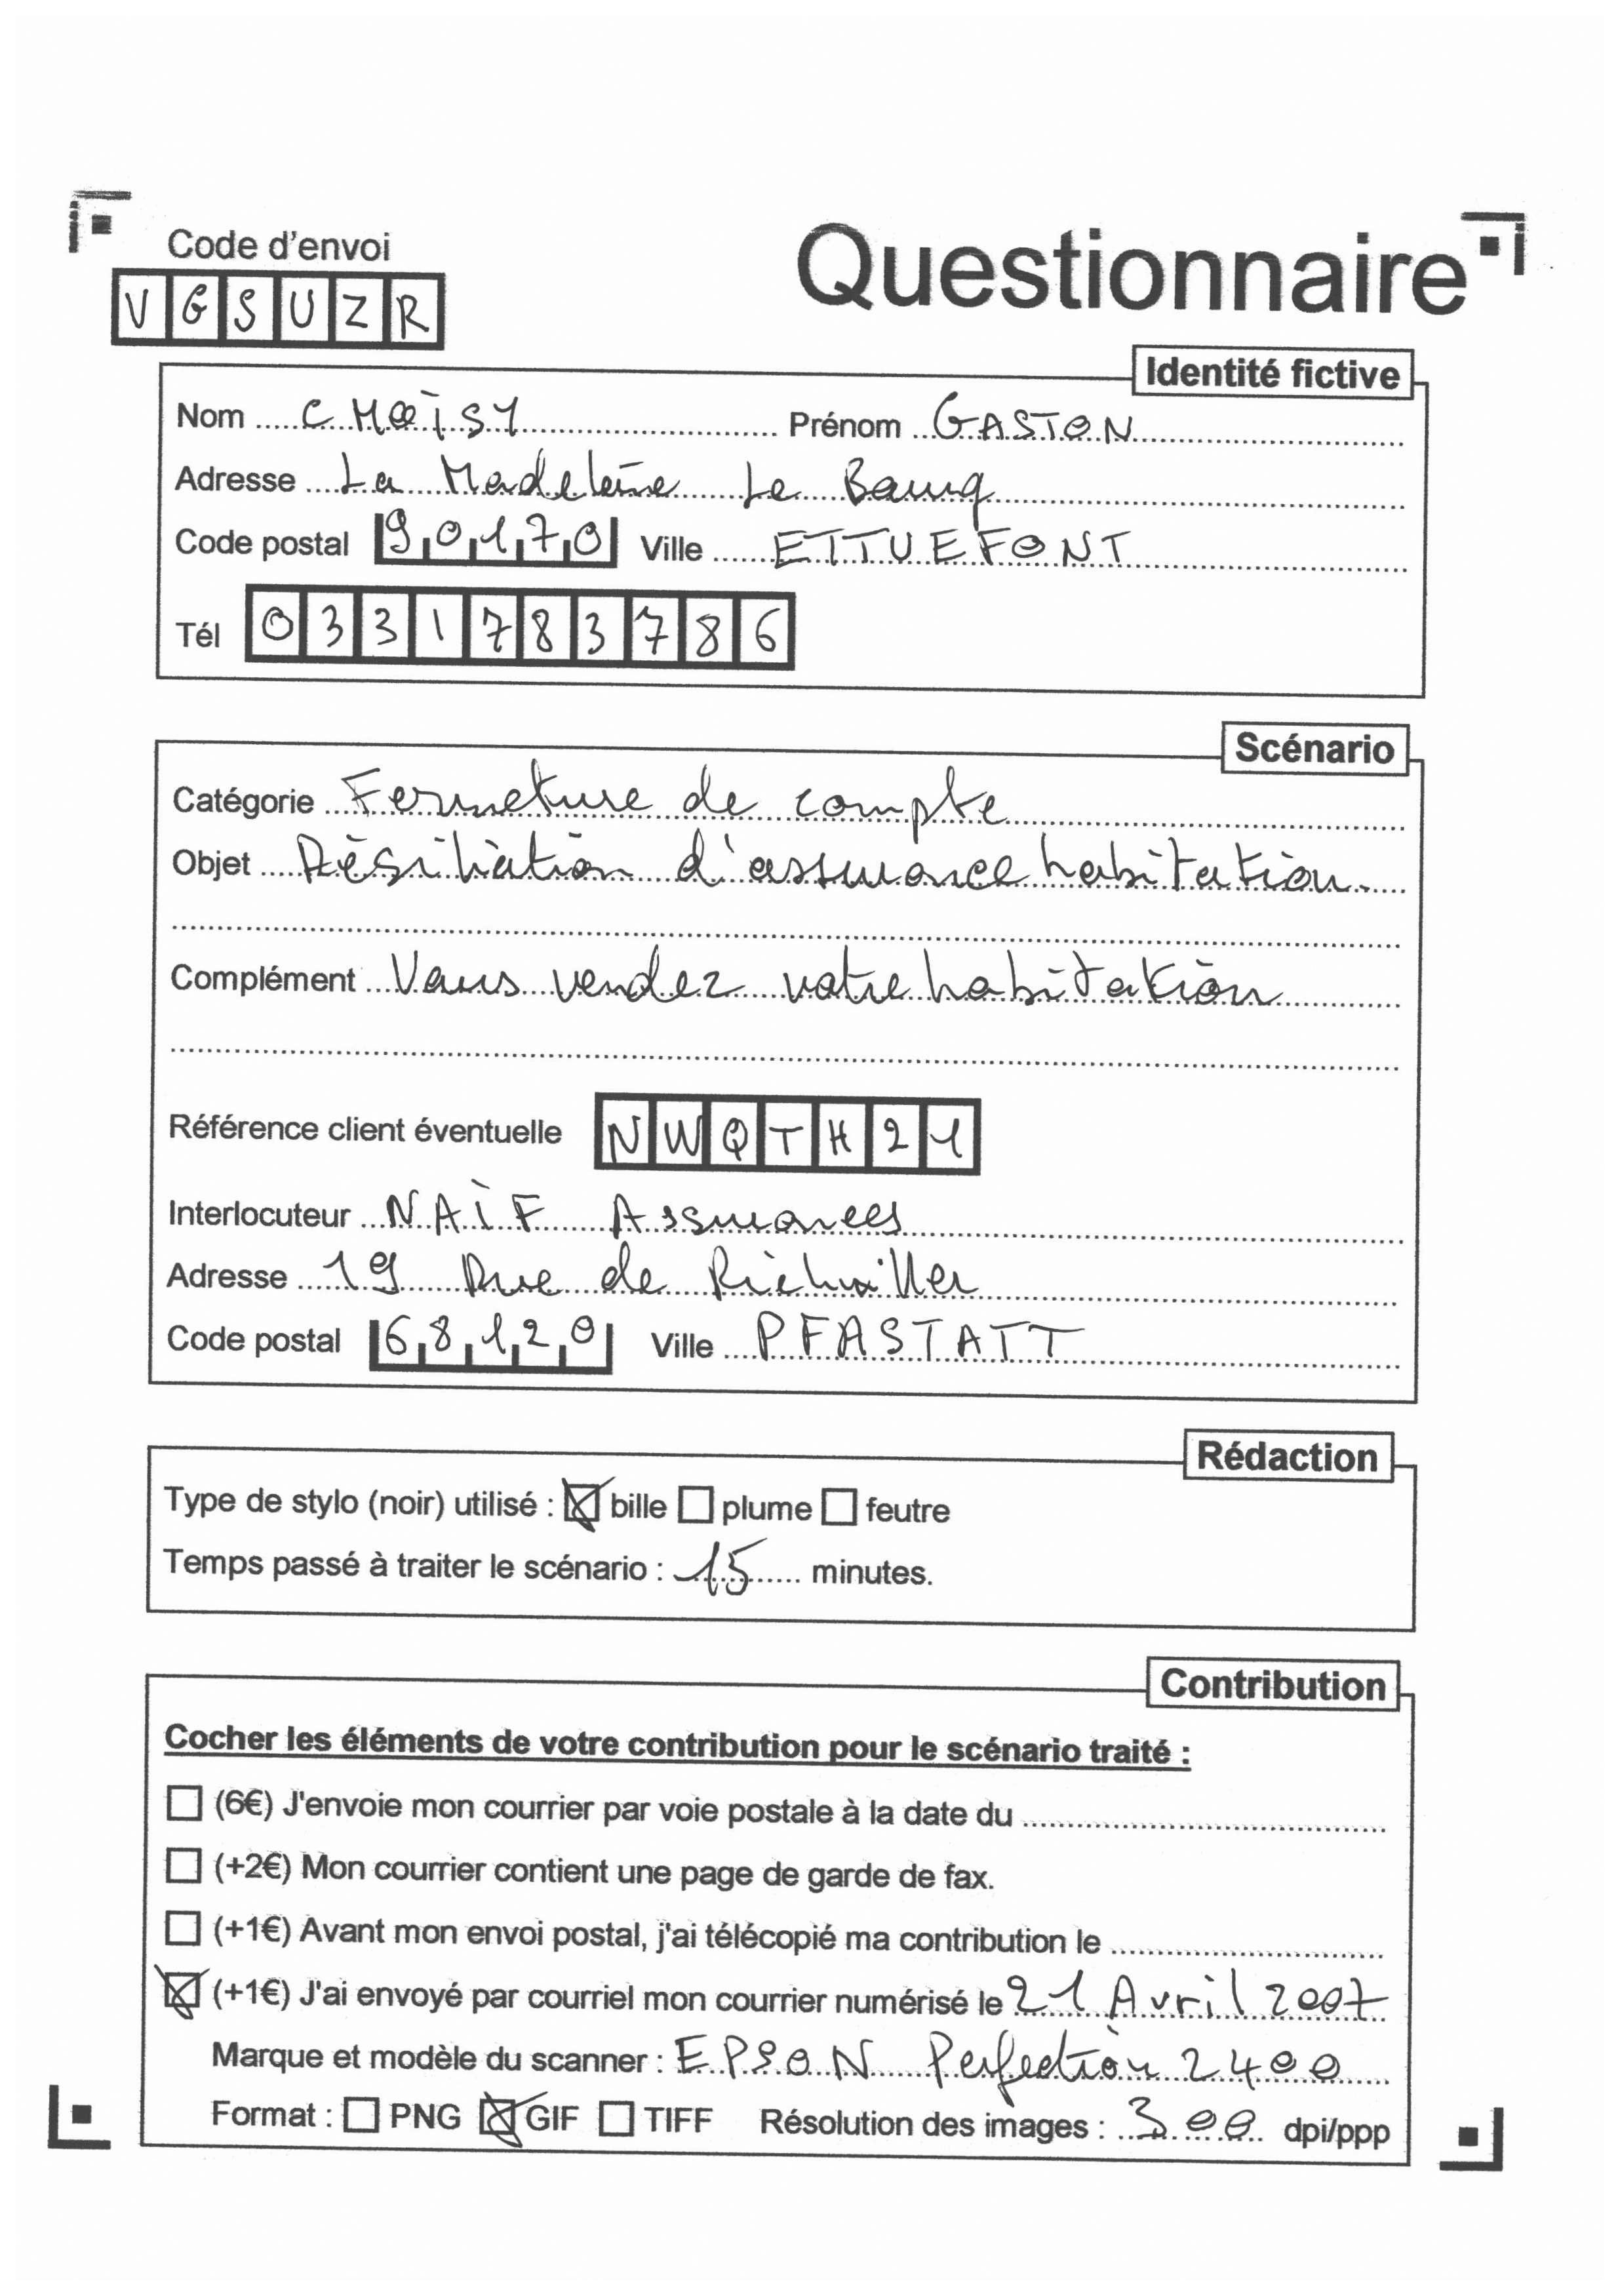 Code d'envoi
VGSUZR
Questionnaire
Identité fictive
Nom CHOISY Prénom GASTON
Adresse La Madeleine Le Bourg
Code postal 90170 Ville ETTUEFONT
Tél 0331783786
Scénario
Catégorie Fermeture de compte
Objet Résiliation d'assurance habitation.
Complément Vous vendez votre habitation
Référence client éventuelle NWQTH21
Interlocuteur NAÏF Assurances
Adresse 19 Rue de Richwiller
Code postal 68120 Ville PFASTATT
Rédaction
Type de stylo (noir) utilisé : bille plume feutre
Temps passé à traiter le scénario : 15 minutes.
Contribution
Cocher les éléments de votre contribution pour le scénario traité :
(6€) J'envoie mon courrier par voie postale à la date du
(+2€) Mon courrier contient une page de garde de fax.
(+1€) Avant mon envoi postal, j'ai télécopié ma contribution le
(+1€) J'ai envoyé par courriel mon courrier numérisé le 21 Avril 2007
Marque et modèle du scanner : EPSON Perfection 2400
Format : PNG GIF TIFF Résolution des images : 300 dpi/ppp